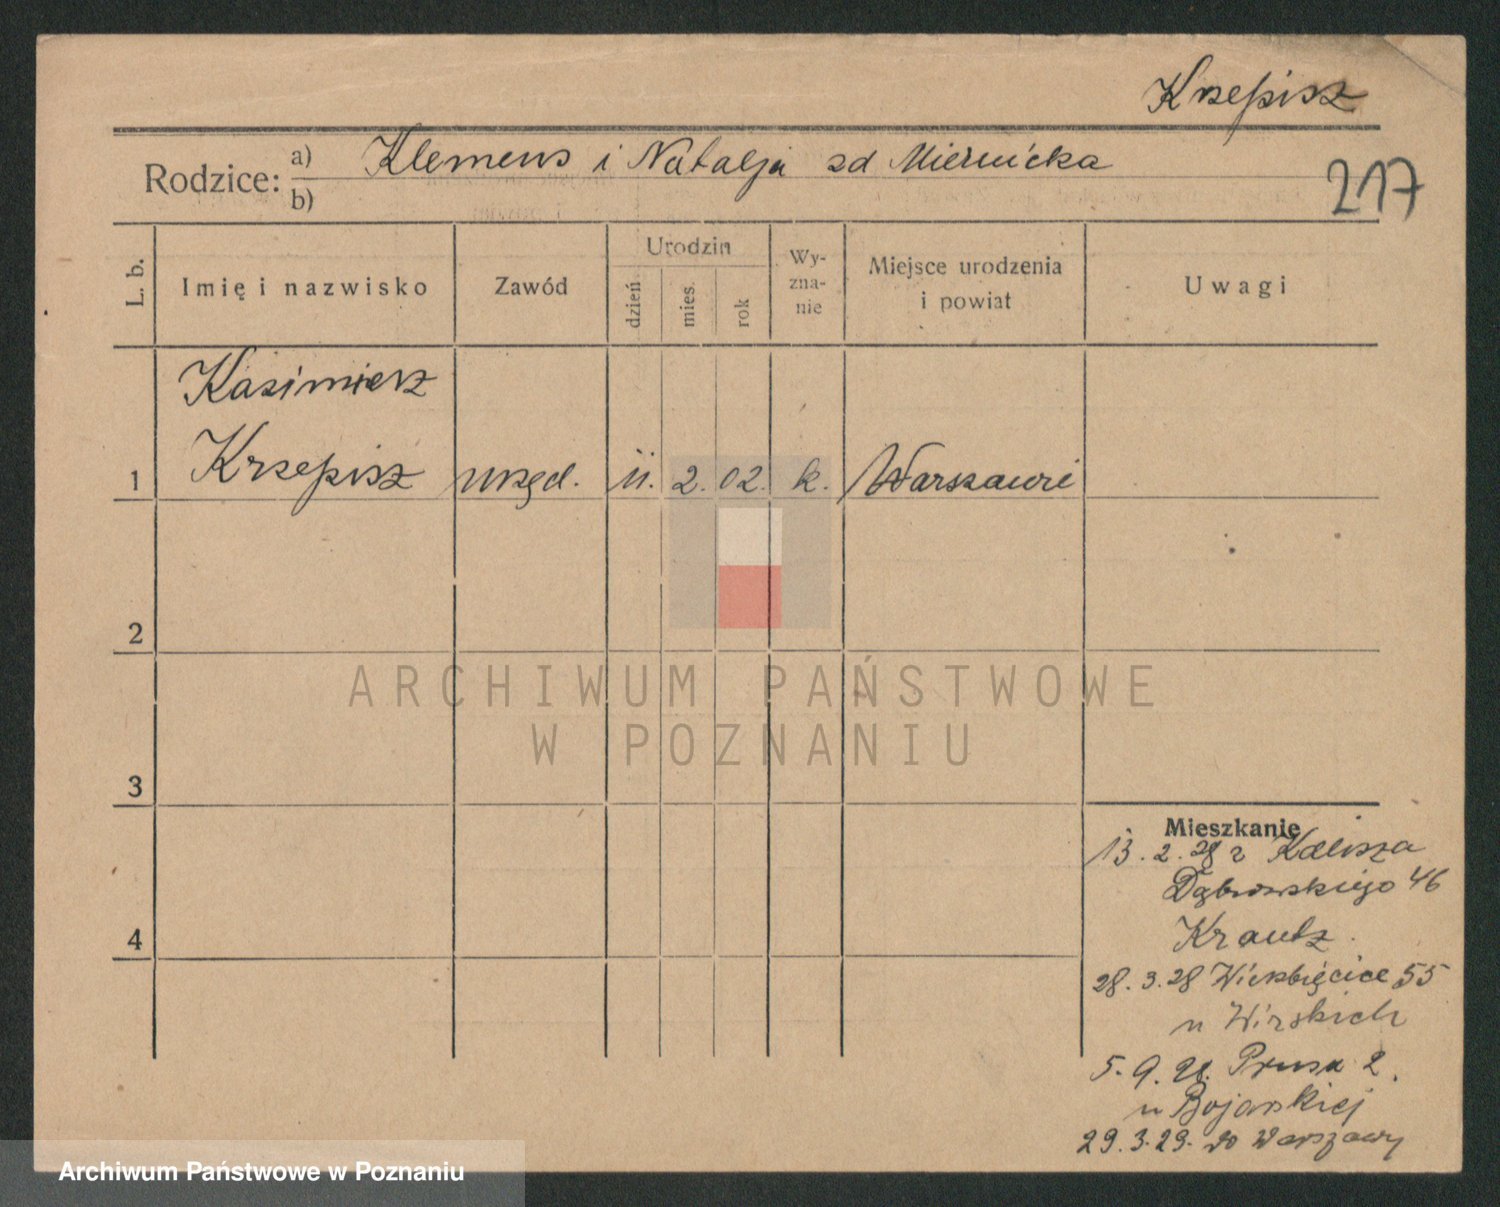 Krzepisz
Rodzice: a) Klemens i Natalja zd Miernicka
b)
217
L. b.
Imię i nazwisko
Zawód
Urodzin
dzień
mies.
rok
Wy-
zna-
nie
Miejsce urodzenia
i powiat
Uwagi
Kazimierz
1 Krzepisz urzęd. 11. 2. 02. k. Warszawie
2
3
4
ARCHIWUM PAŃSTWOWE
W POZNANIU
Mieszkanie
13. 2. 28 z Kalisza
Dąbrowskiego 46
Krautz.
28. 3. 28 Wierzbięcice 55
u Wirskich
5. 9. 28. Prusa 2.
u Bojarskiej
29. 3. 29. do Warszawy
Archiwum Państwowe w Poznaniu